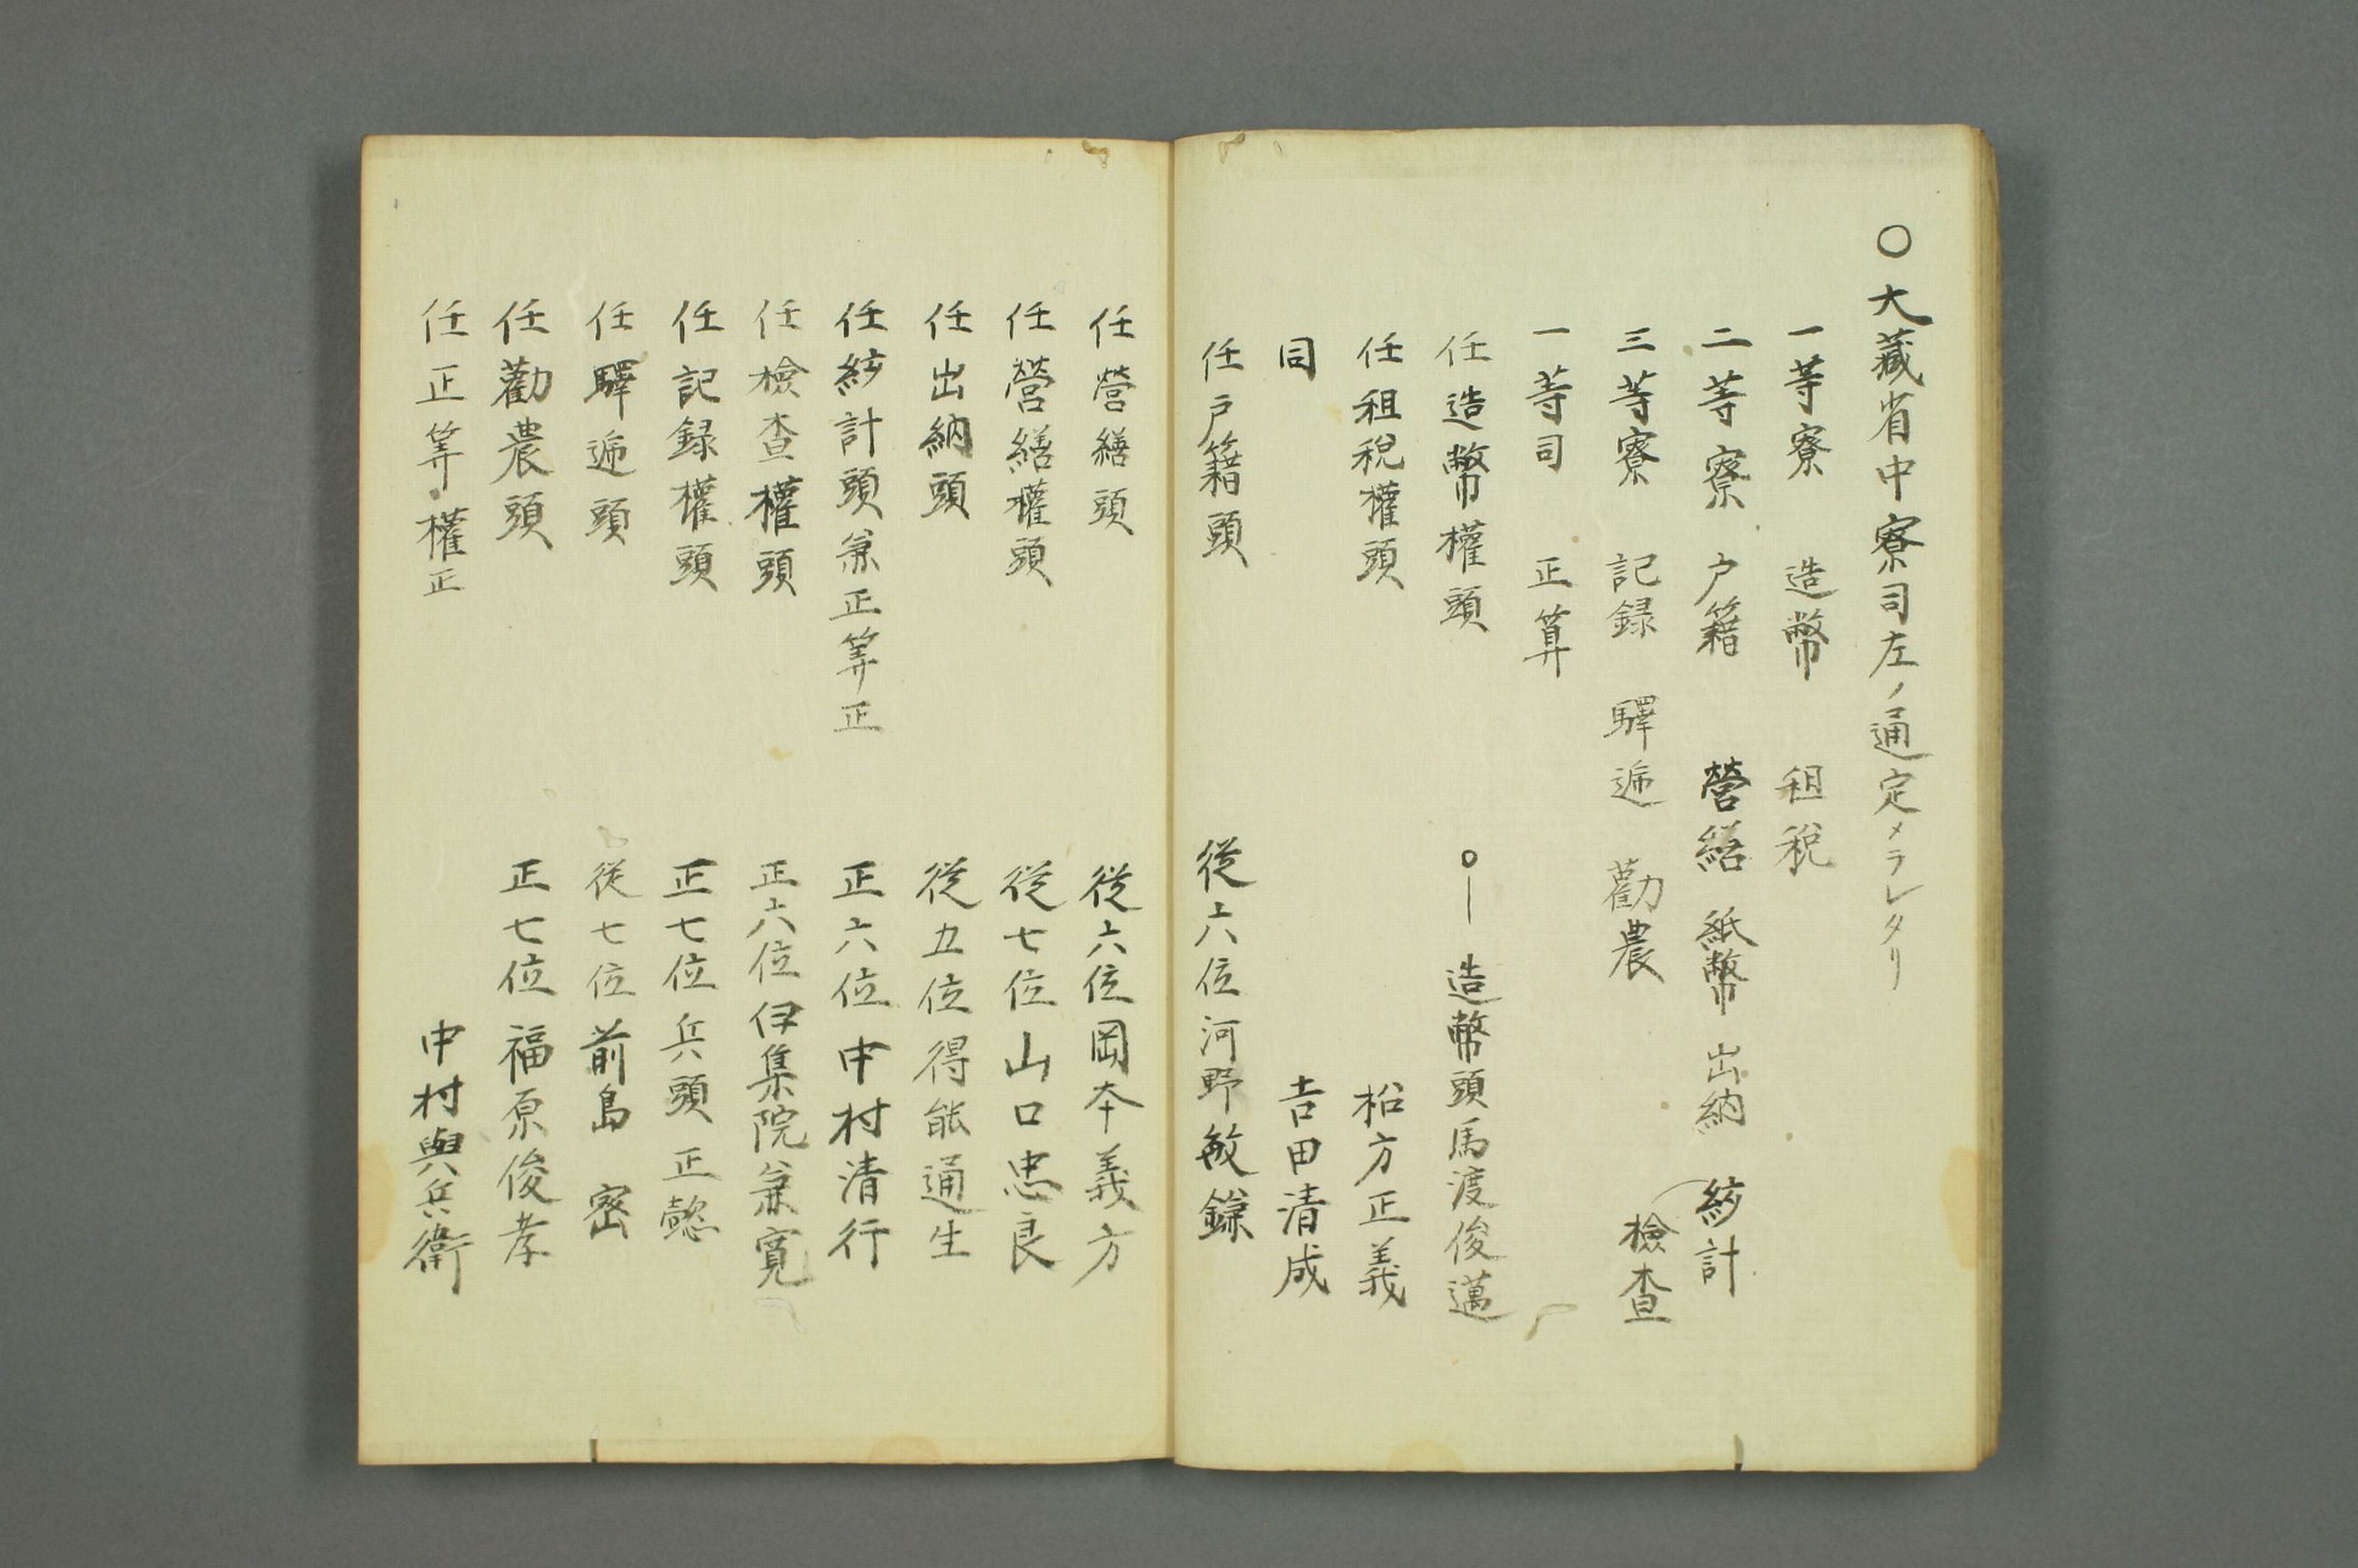 〇大藏省中寮司左ノ通定メラレタリ
一等寮 造幣 租税
二等寮 戸籍 營繕 紙幣 出納 紗計
檢查
三等寮 記録 驛逓 勸農
一等司 正算
任造幣權頭 造幣頭馬渡俊邁
任租税權頭 松方正義
同 吉田清成
任戸籍頭 従六位河野敏鎌
任營繕頭 従六位岡本義方
任營繕權頭 従七位山口忠良
任出納頭 従五位得能通生
任紗計頭兼正筭正 正六位中村清行
任檢查權頭 正六位伊集院兼寛
任記録權頭 正七位兵頭正懿
任驛逓頭 従七位前島密
任勸農頭 正七位福原俊孝
任正筭權正 中村與兵衛